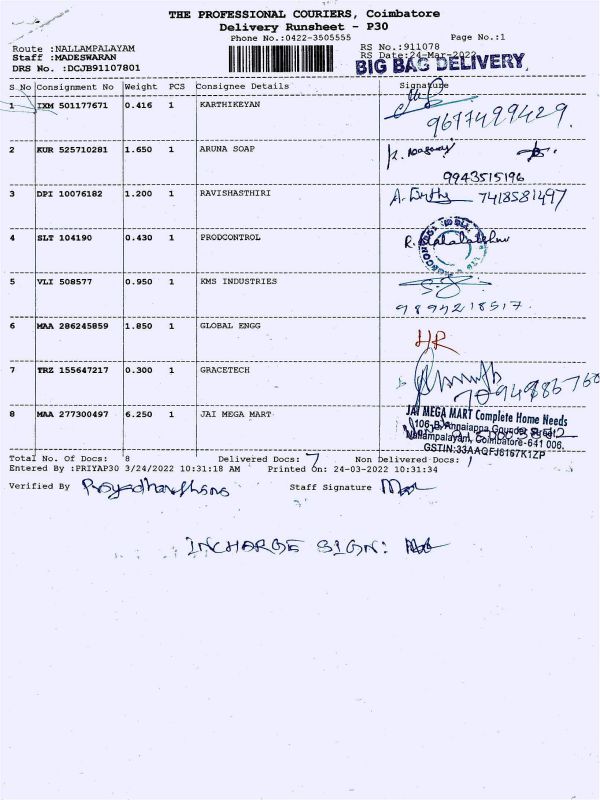 THE PROFESSIONAL COURIERS, Coimbatore
Delivery Runsheet - P30
Phone No.:0422-3505555 Page No.:1
Route :NALLAMPALAYAM RS No.:911078
Staff :MADESWARAN RS Date:24-Mar-2022
DRS No. :DCJB91107801 BIG BAG DELIVERY
S No Consignment No Weight PCS Consignee Details Signature
1 IXM 501177671 0.416 1 KARTHIKEYAN
9677499429.
2 KUR 525710281 1.650 1 ARUNA SOAP
9943515196
3 DPI 10076182 1.200 1 RAVISHASTHIRI 7418581497
4 SLT 104190 0.430 1 PRODCONTROL
5 VLI 508577 0.950 1 KMS INDUSTRIES
9894218517.
6 MAA 286245859 1.850 1 GLOBAL ENGG
HR
7 TRZ 155647217 0.300 1 GRACETECH
8 MAA 277300497 6.250 1 JAI MEGA MART
JAI MEGA MART Complete Home Needs
Nallampalayam, Coimbatore-641 006.
GSTIN:33AAQFJ6167K1ZP
Total No. Of Docs: 8 Delivered Docs: 7 Non Delivered Docs: 1
Entered By :PRIYAP30 3/24/2022 10:31:18 AM Printed On: 24-03-2022 10:31:34
Verified By Priyadharshana Staff Signature
INCHARGE SIGN: